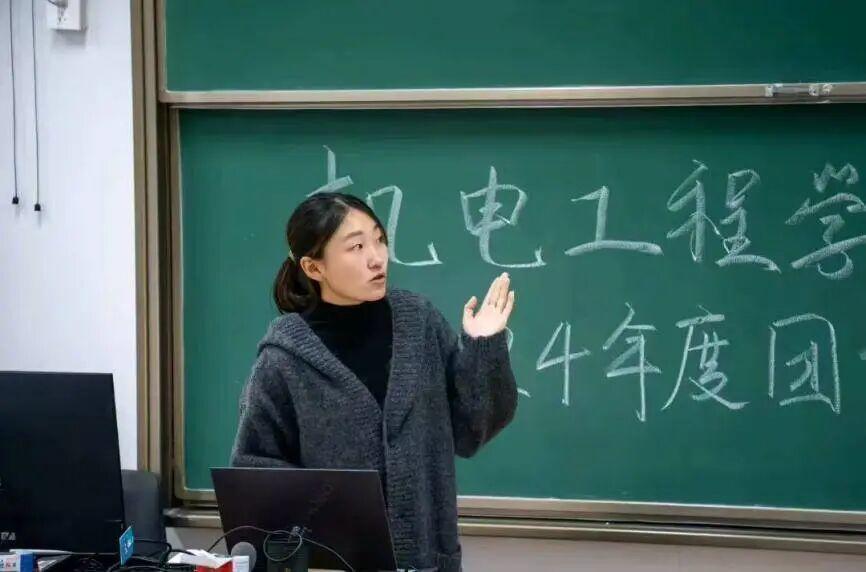 机电工程学
24年度团